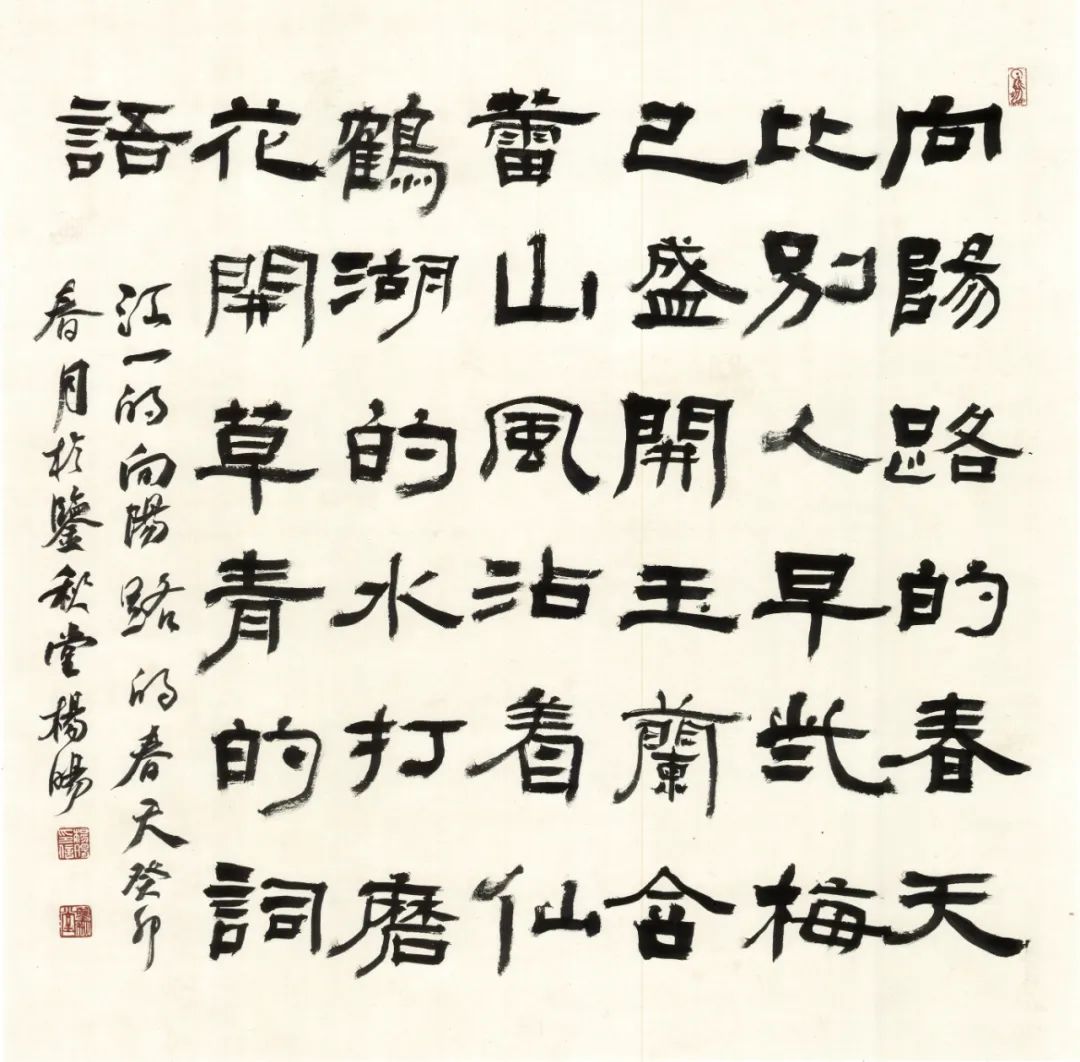 向陽路的春天
比别人早些梅
已盛開玉蘭含
蕾山風沾着仙
鶴湖的水打磨
花開草青的詞
語
江一的向陽路的春天癸卯
春月於鑒秋堂楊暘